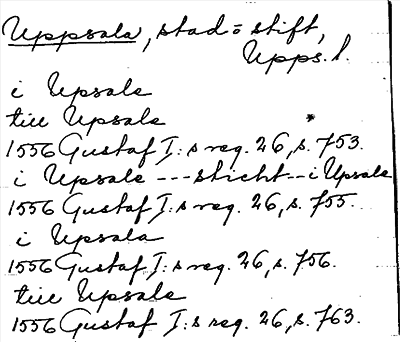 Uppsala, stad o stift,
Upps. l.
i Upsale
till Upsale
1556 Gustaf I:s reg. 26, s. 753.
i Upsale --- sticht -- i Upsale
1556 Gustaf I:s reg. 26, s. 755.
i Upsala
1556 Gustaf I:s reg. 26, s. 756.
till Upsale
1556 Gustaf I:s reg. 26, s. 763.